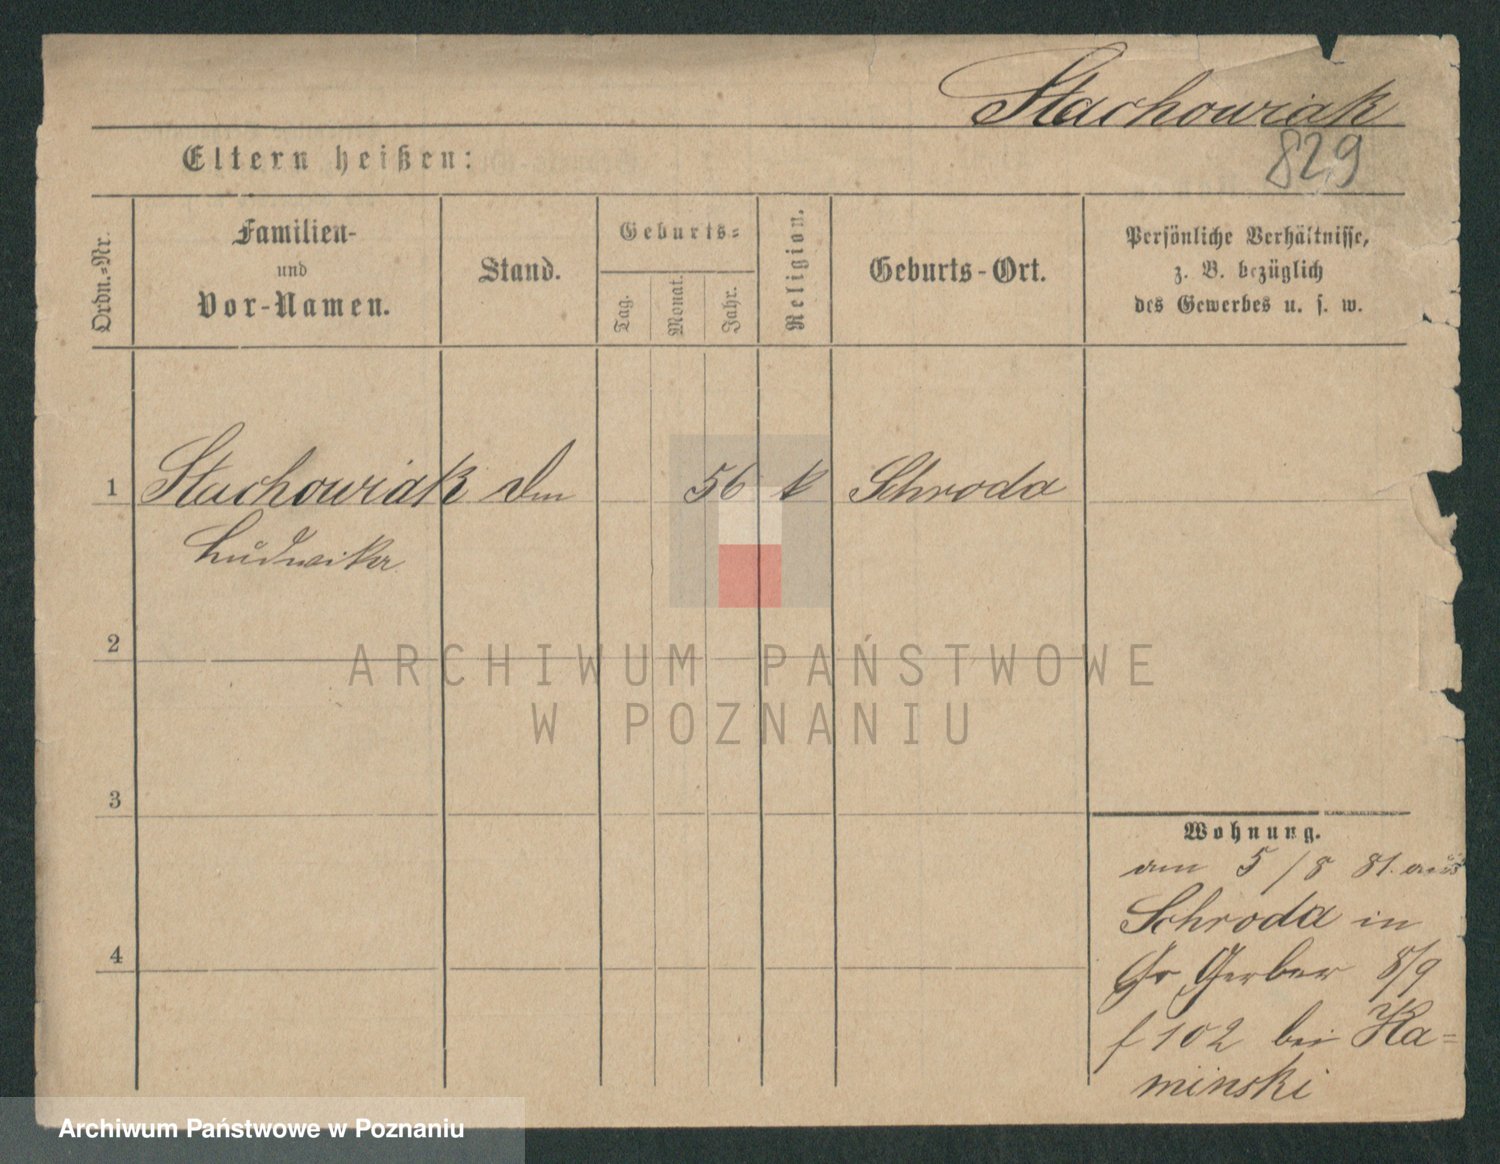 Stachowiak
829
Eltern heißen:
Ordn.=Nr.
Familien-
und
Vor-Namen.
Stand.
Geburts=
Tag.
Monat.
Jahr.
Religion.
Geburts-Ort.
Persönliche Verhältnisse,
z. B. bezüglich
des Gewerbes u. s. w.
1 Stachowiak 56 k Schroda
Ludwika
2
3
4
Wohnung.
am 5/8 81. aus
Schroda in
Gr Gerber 8/9
f 102 bei Ka=
minski
ARCHIWUM PAŃSTWOWE
W POZNANIU
Archiwum Państwowe w Poznaniu